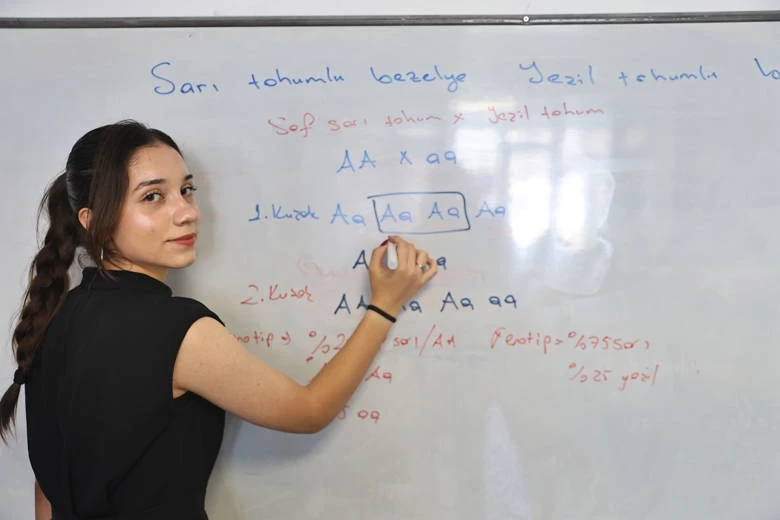 Sarı tohumlu bezelye Yeşil tohumlu
Saf sarı tohum x Yeşil tohum
AA x aa
1. Kuşak Aa Aa Aa Aa
2. Kuşak AA Aa aa
sarı/AA Fenotip= %75 sarı
Aa %25 yeşil
aa